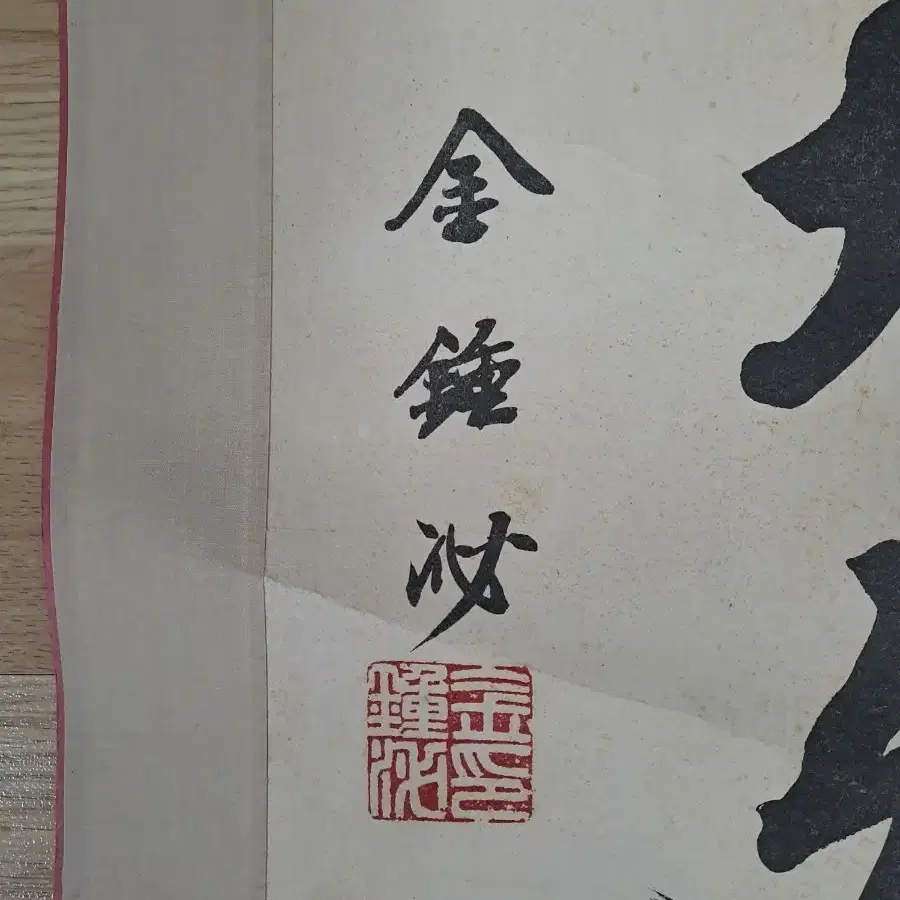 金鍾泌
金印
鍾泌